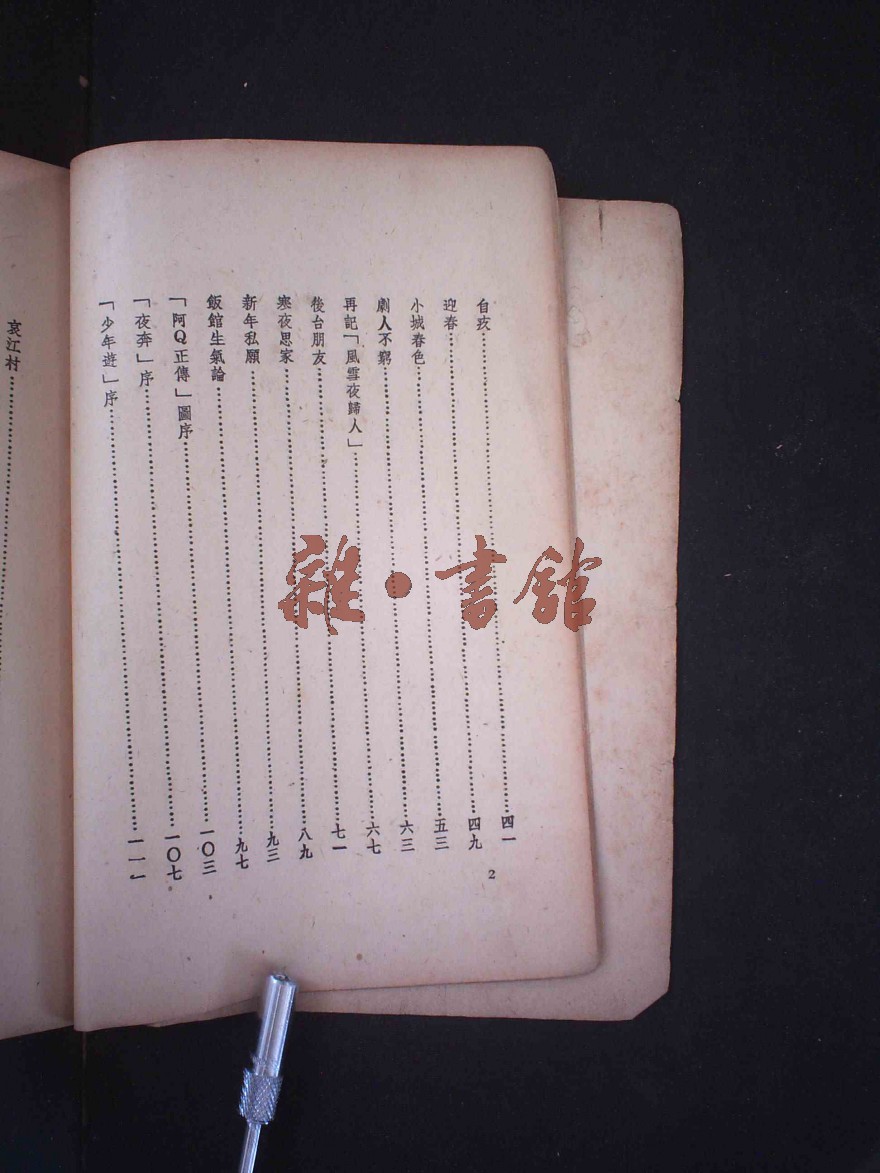 自疚……四一
迎春……四九
小城春色……五三
劇人不窮……六三
再記「風雪夜歸人」……六七
後台朋友……七一
寒夜思家……八九
新年私願……九三
飯館生氣論……九七
「阿Q正傳」圖序……一〇三
「夜奔」序……一〇七
「少年遊」序……一一一
2
哀江村……
雜·書館